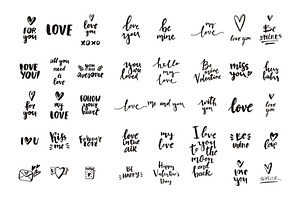 FOR YOU
LOVE
love you xoxo
love you
be mine
my love
love you
Be mine
LOVE YOU!
all you need is love
you are awesome
you are loved
hello my love
Be mine Valentine
miss you
hey baby
for you
my LOVE
FOLLOW YOUR HEART
love me and you
with you
love
love you
I U
Kiss me
Forever
love is in the air
my love
I love you to the moon and back
BE mine
love
BE HAPPY
Happy Valentine's Day
love you